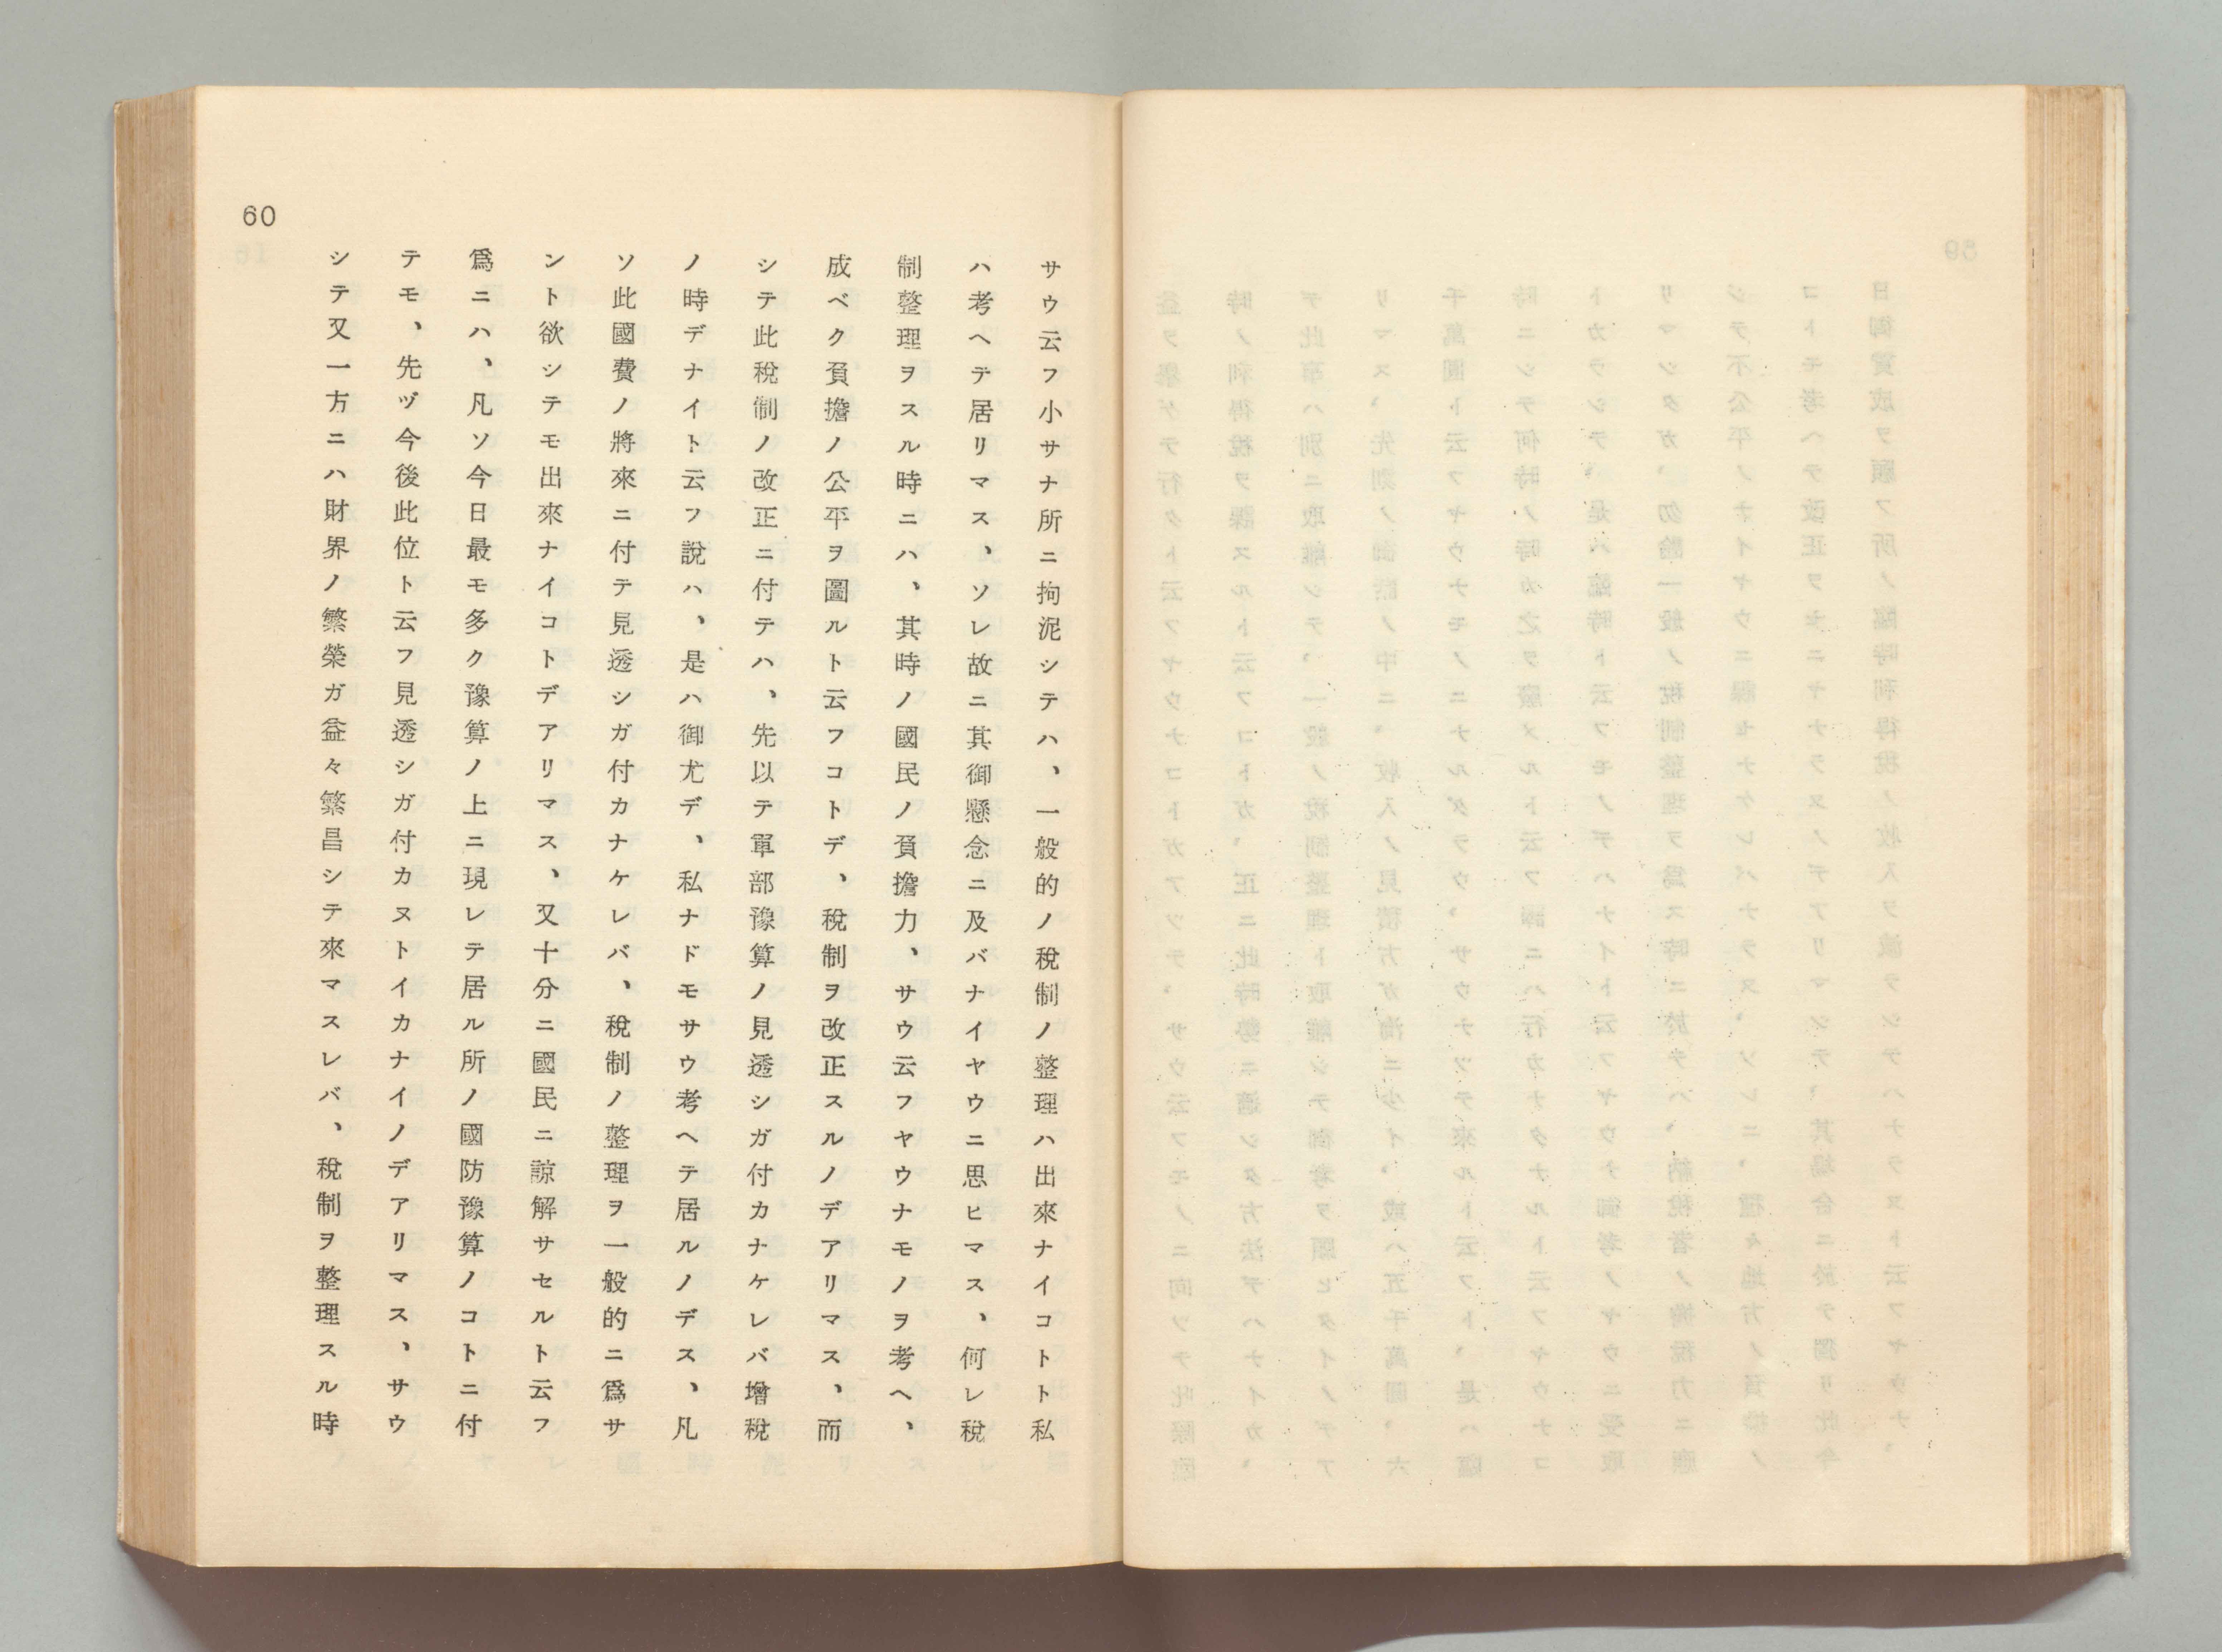 60
サウ云フ小サナ所ニ拘泥シテハ、一般的ノ稅制ノ整理ハ出來ナイコトト私
ハ考ヘテ居リマス、ソレ故ニ其御懸念ニ及バナイヤウニ思ヒマス、何レ稅
制整理ヲスル時ニハ、其時ノ國民ノ負擔力、サウ云フヤウナモノヲ考ヘ、
成ベク負擔ノ公平ヲ圖ルト云フコトデ、稅制ヲ改正スルノデアリマス、而
シテ此稅制ノ改正ニ付テハ、先以テ軍部豫算ノ見透シガ付カナケレバ增稅
ノ時デナイト云フ說ハ、是ハ御尤デ、私ナドモサウ考ヘテ居ルノデス、凡
ソ此國費ノ將來ニ付テ見透シガ付カナケレバ、稅制ノ整理ヲ一般的ニ爲サ
ント欲シテモ出來ナイコトデアリマス、又十分ニ國民ニ諒解サセルト云フ
爲ニハ、凡ソ今日最モ多ク豫算ノ上ニ現レテ居ル所ノ國防豫算ノコトニ付
テモ、先ヅ今後此位ト云フ見透シガ付カヌトイカナイノデアリマス、サウ
シテ又一方ニハ財界ノ繁榮ガ益々繁昌シテ來マスレバ、稅制ヲ整理スル時